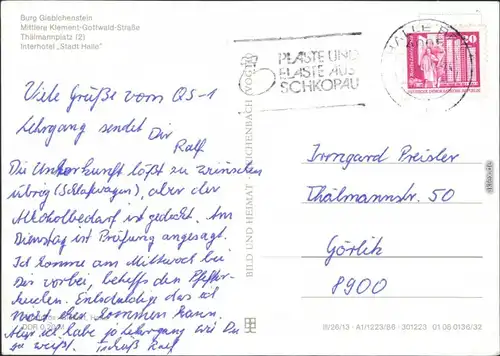 Burg Giebichenstein
Mittlere Klement-Gottwald-Straße
Thälmannplatz (2)
Interhotel „Stadt Halle"
PLASTE UND
ELASTE AUS
SCHKOPAU
HALLE
20
DEUTSCHE DEMOKRATISCHE REPUBLIK
Viele Grüße vom QS-1
Lehrgang sendet Dir
Ralf
Die Unterkunft läßt zu wünschen
übrig (Schlafwagen), aber der
Alkoholbedarf ist gedeckt. Am
Dienstag ist Prüfung angesagt.
Ich komme am Mittwoch bei
Dir vorbei, behufs den Pfeffer-
kuchen. Entschuldige das ich
nicht kommen kann.
Aber ich habe ja Lehrgang wie Du
ja weißt. Tschüß Ralf
BILD UND HEIMAT REICHENBACH (VOGTL)
Irmgard Preisler
Thälmannstr. 50
Görlitz
8900
DDR 0,20 M
III/26/13 · A1/1223/86 · 301223 01 06 0136/32